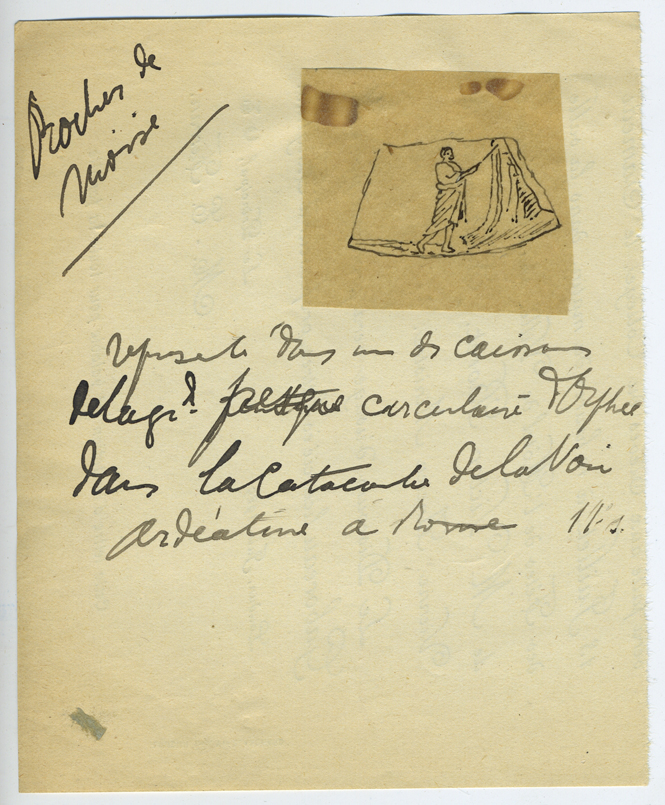 Rocher de
Moïse
représenté dans un des caissons
de la gr.d fresque circulaire d'Orphée
dans la Catacombe de la Voie
Ardéatine à Rome II s.